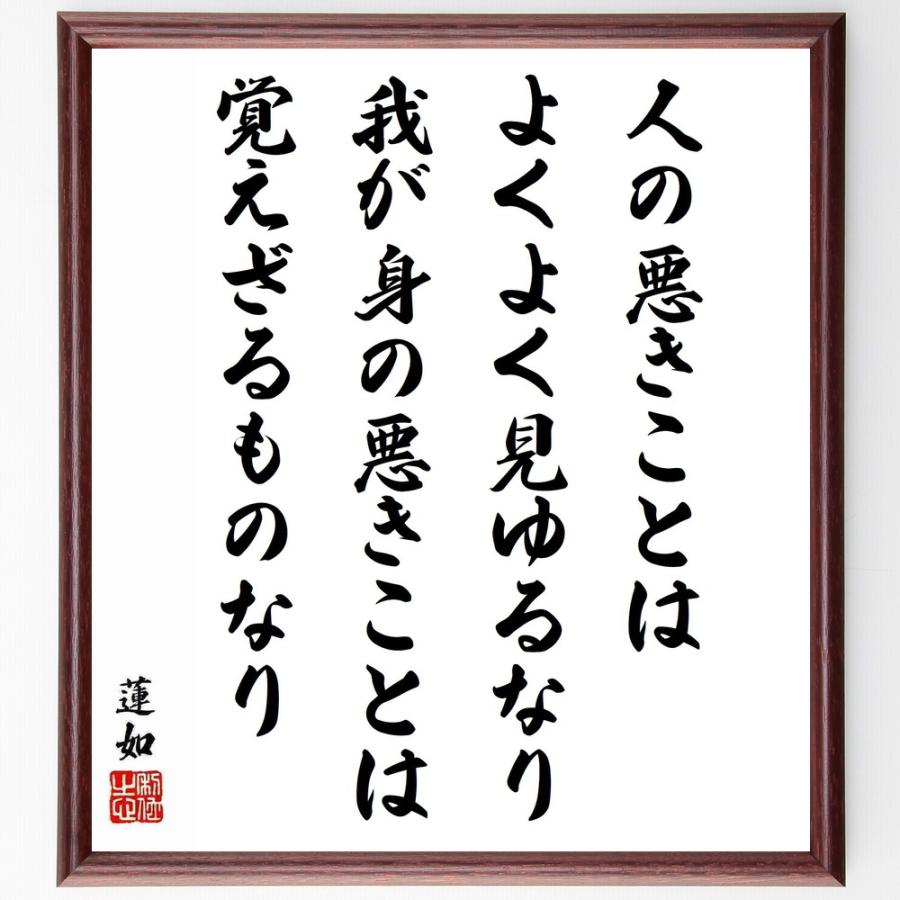 人の悪きことは
よくよく見ゆるなり
我が身の悪きことは
覚えざるものなり
蓮如